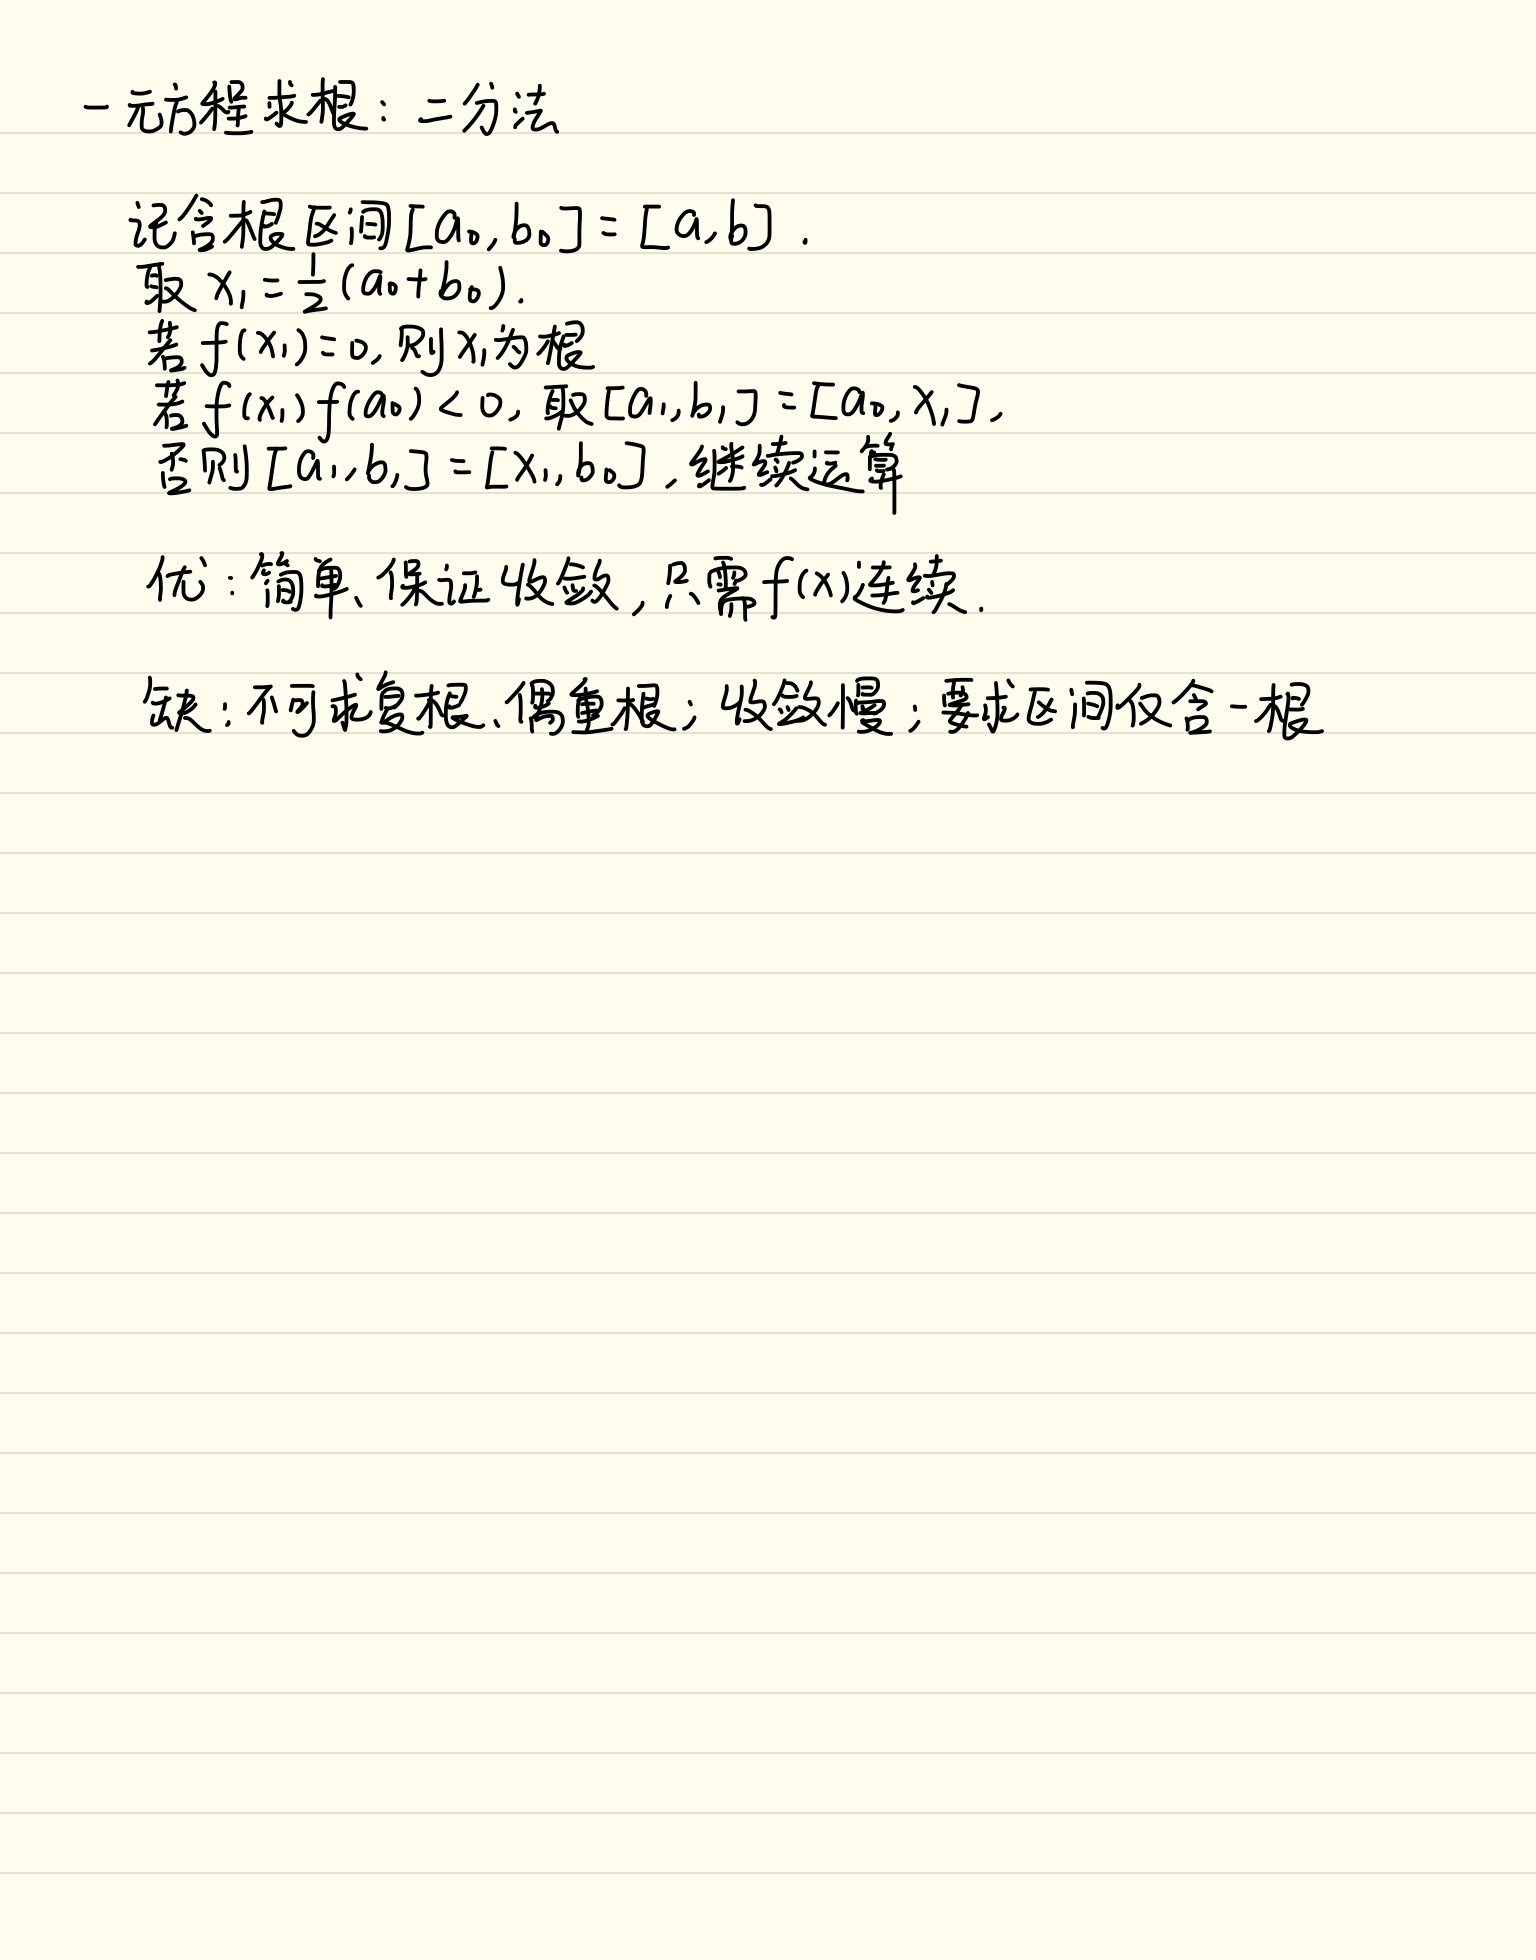 一元方程求根：二分法
记含根区间[a₀,b₀]=[a,b].
取 x₁=½(a₀+b₀).
若f(x₁)=0,则x₁为根
若f(x₁)f(a₀)<0,取[a₁,b₁]=[a₀,x₁],
否则[a₁,b₁]=[x₁,b₀],继续运算
优：简单、保证收敛,只需f(x)连续.
缺：不可求复根、偶重根；收敛慢；要求区间仅含一根